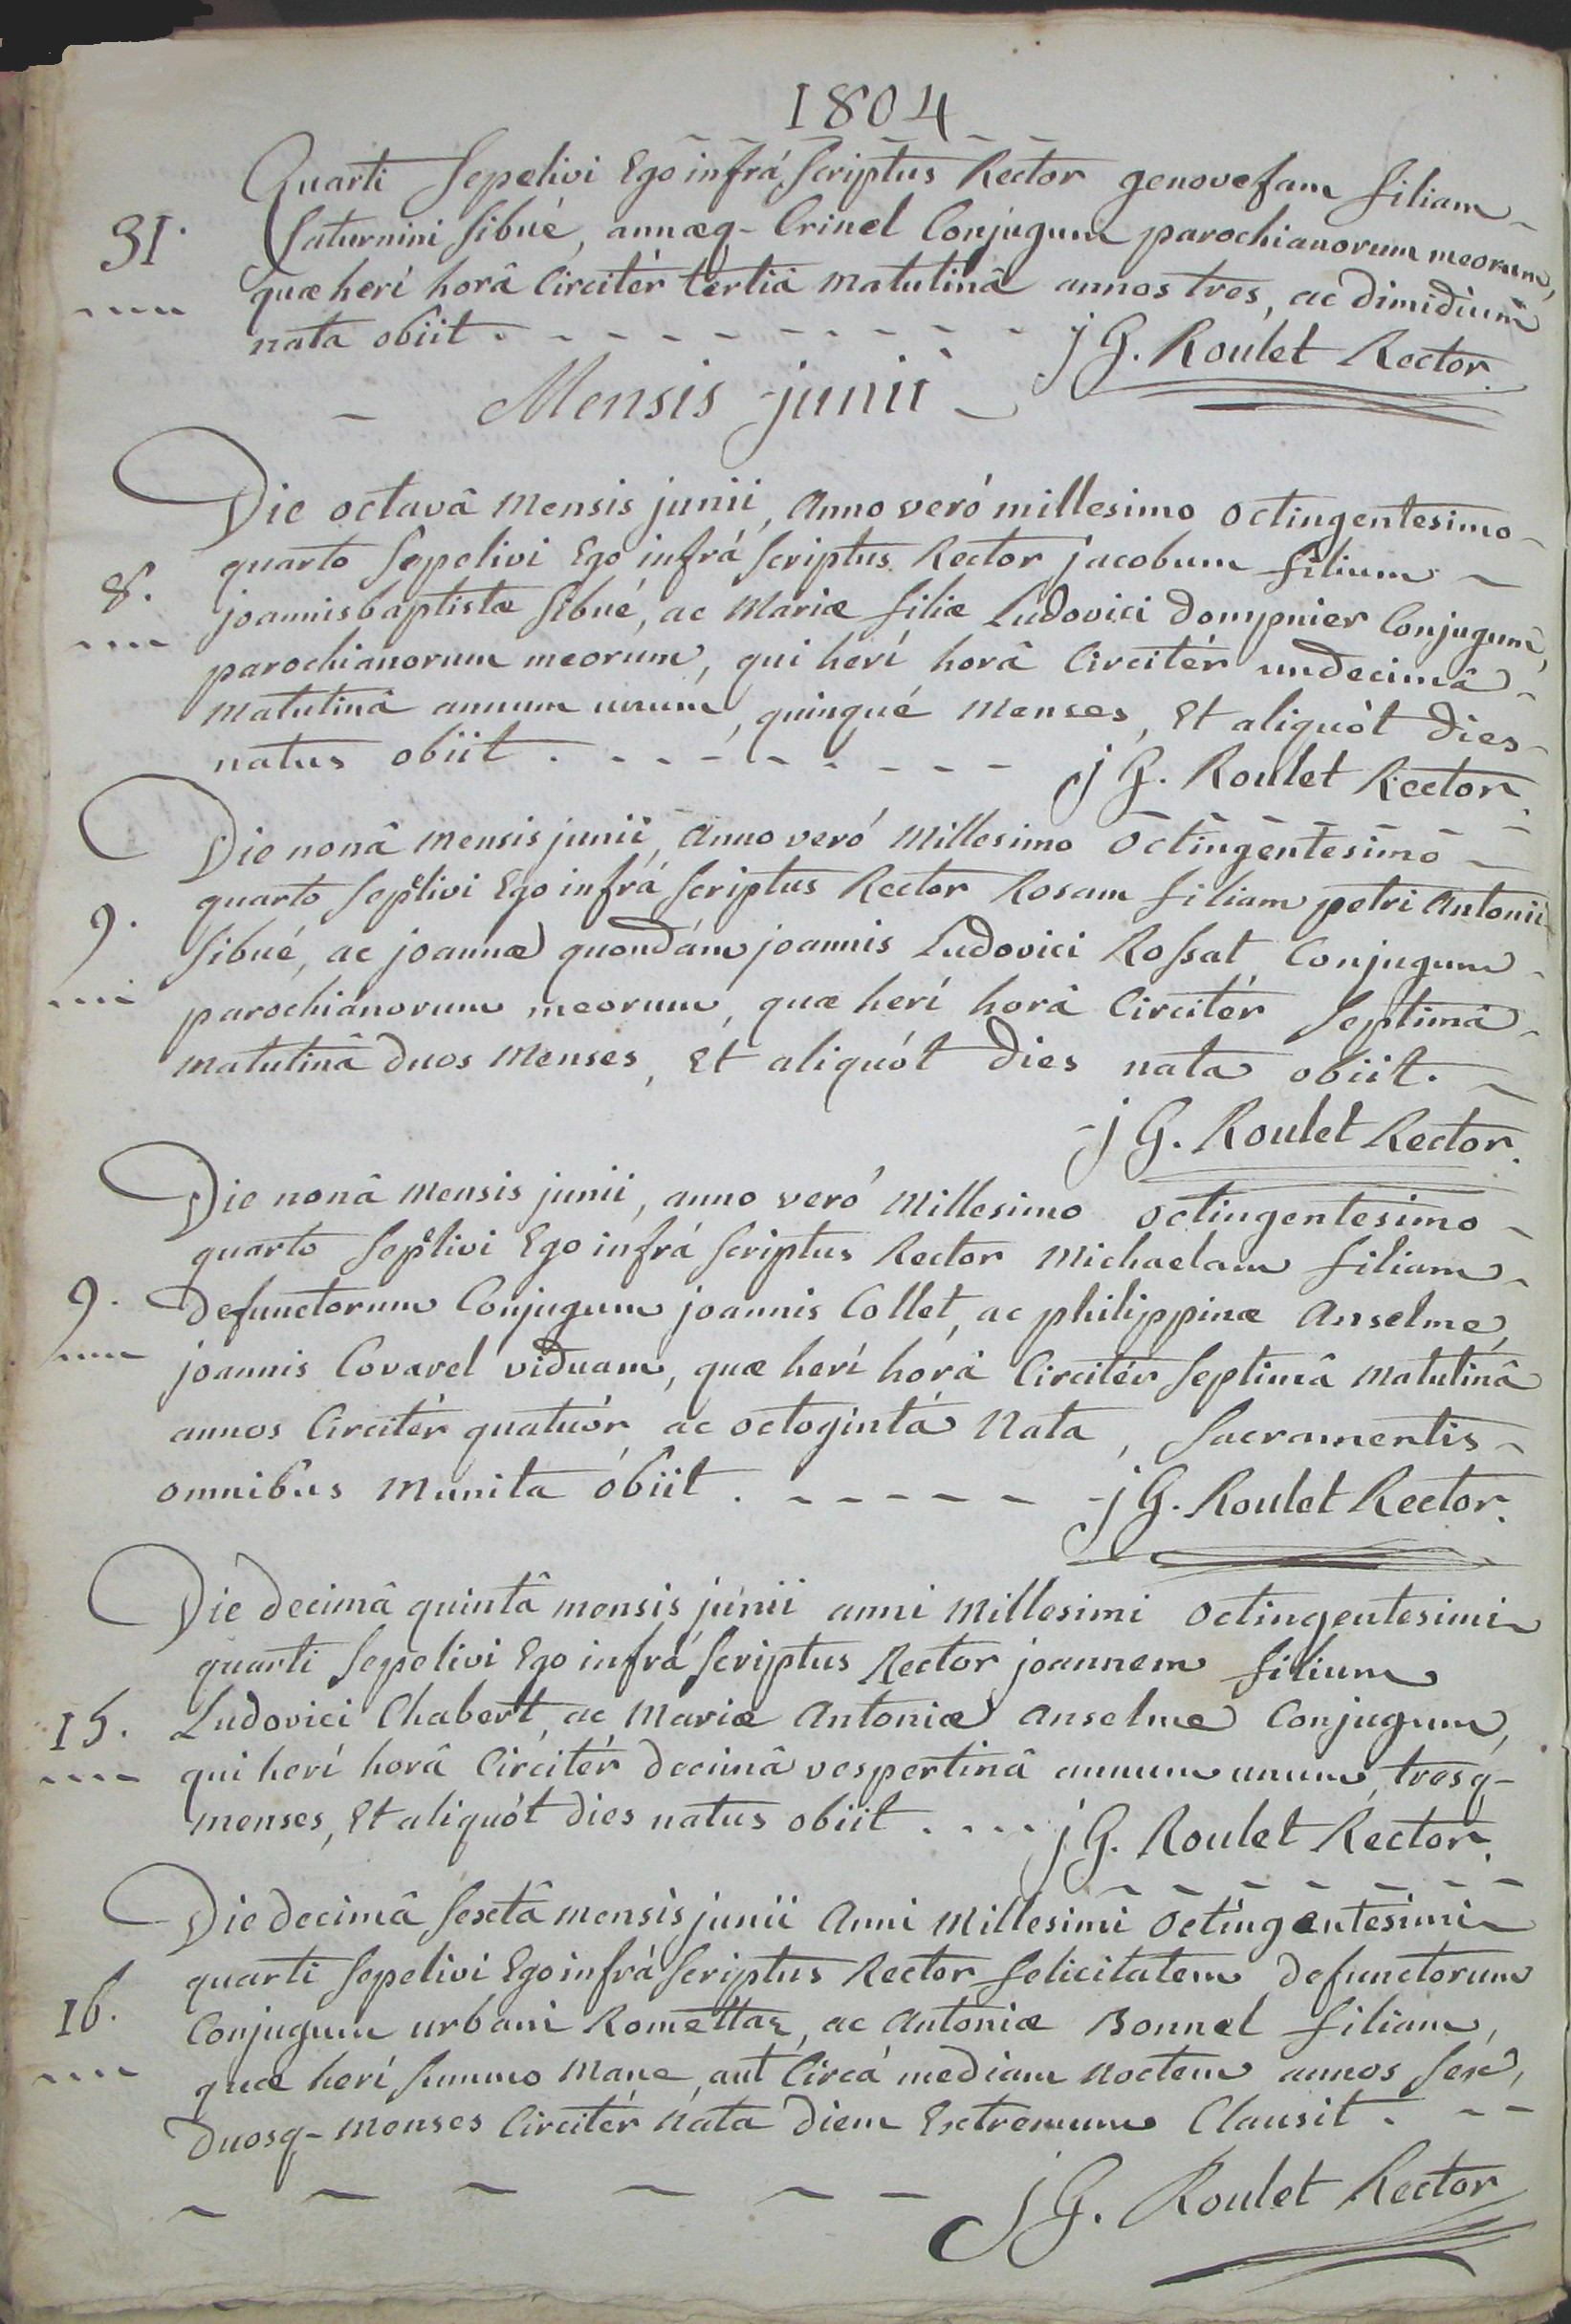 1804
Quarti Sepelivi Ego infrá Scriptus Rector genovefam filiam
31. Saturnini Sibué, annæq- Crinel Conjugum parochianorum meorum,
quæ herí horâ Circitér tertiâ matutinâ annos tres, ac dimidium
nata obiit. jG. Roulet Rector.
Mensis junii
Die octavâ mensis junii, Anno veró millesimo octingentesimo
quarto Sepelivi Ego infrá Scriptus Rector jacobum filium
8. joannisbaptistæ Sibué, ac Mariæ filiæ Ludovici dompnier Conjugum,
parochianorum meorum, qui herí horâ Circitér undecimâ
matutinâ annum unum, quinqué menses, Et aliquót dies
natus obiit. jG. Roulet Rector.
Die nonâ mensis junii, Anno veró Millesimo Octingentesimo
quarto Sepelivi Ego infrá Scriptus Rector Rosam filiam petri Antonii
9. Sibué, ac joannæ quondám joannis Ludovici Rossat Conjugum
parochianorum meorum, quæ herí horâ Circitér Septimâ
matutinâ duos menses, Et aliquót dies nata obiit.
jG. Roulet Rector.
Die nonâ mensis junii, anno veró Millesimo octingentesimo
quarto Sepelivi Ego infrá Scriptus Rector Michaelam filiam
9. defunctorum Conjugum joannis Collet, ac philippinæ Anselme,
joannis Covarel viduam, quæ herí horâ Circitér Septimâ Matutinâ
annos Circitér quatuór, ac octogintá Nata, Sacramentis
omnibus munita obiit. jG. Roulet Rector.
Die decimâ quintâ mensis junii anni Millesimi octingentesimi
quarti Sepelivi Ego infrá Scriptus Rector joannem filium
15. Ludovici Chabert, ac Mariæ Antoniæ Anselme Conjugum,
qui herí horâ Circitér decimâ vespertinâ annum unum, tresq-
menses, Et aliquót dies natus obiit.... jG. Roulet Rector.
Die decimâ Sextâ mensis junii Anni Millesimi Octingentesimi
quarti Sepelivi Ego infrá Scriptus Rector felicitatem defunctorum
16. Conjugum urbani Romettaz, ac Antoniæ Bonnel filiam,
quæ herí Summo Mane, aut Circá mediam noctem annos Sex,
duosq- menses Circitér Nata diem Extremum Clausit.
jG. Roulet Rector